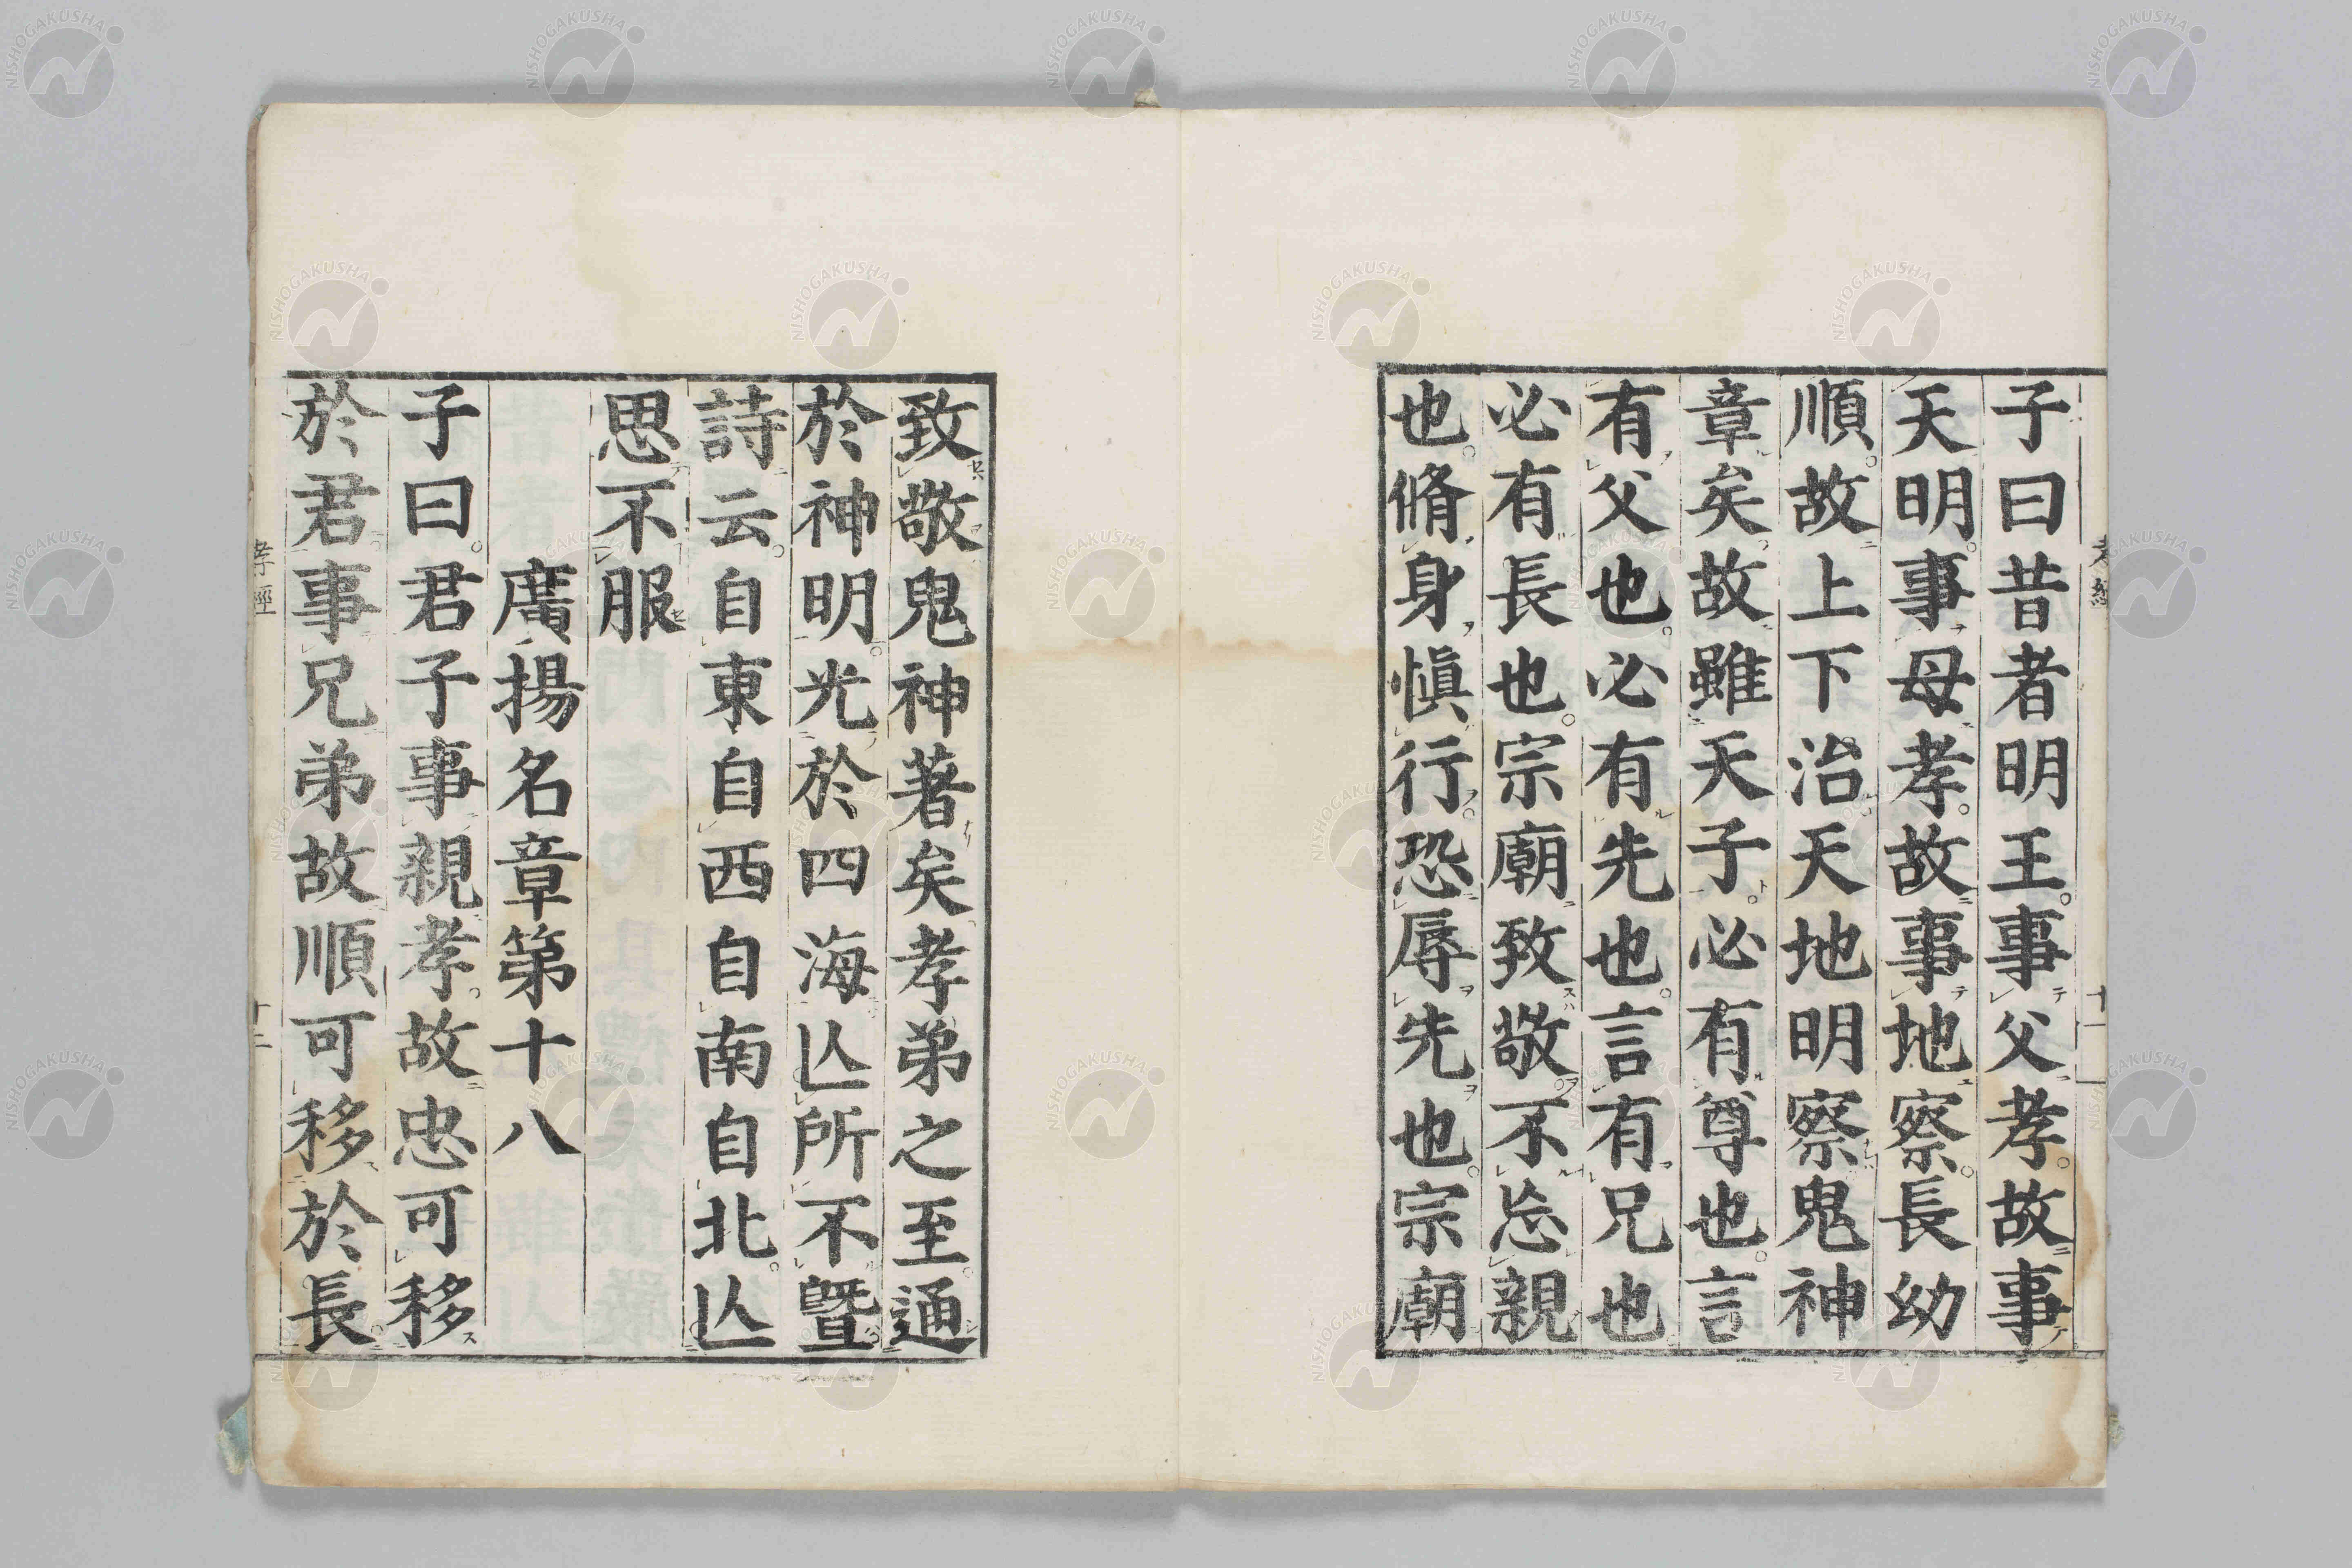 子曰昔者明王事父孝故事
天明事母孝故事地察長幼
順故上下治天地明察鬼神
章矣故雖天子必有尊也言
有父也必有先也言有兄也
必有長也宗廟致敬不忘親
也脩身愼行恐辱先也宗廟
致敬鬼神著矣孝弟之至通
於神明光於四海亾所不曁
詩云自東自西自南自北亾
思不服
廣揚名章第十八
子曰君子事親孝故忠可移
於君事兄弟故順可移於長
孝經
十二
孝經
十一
NISHOGAKUSHA